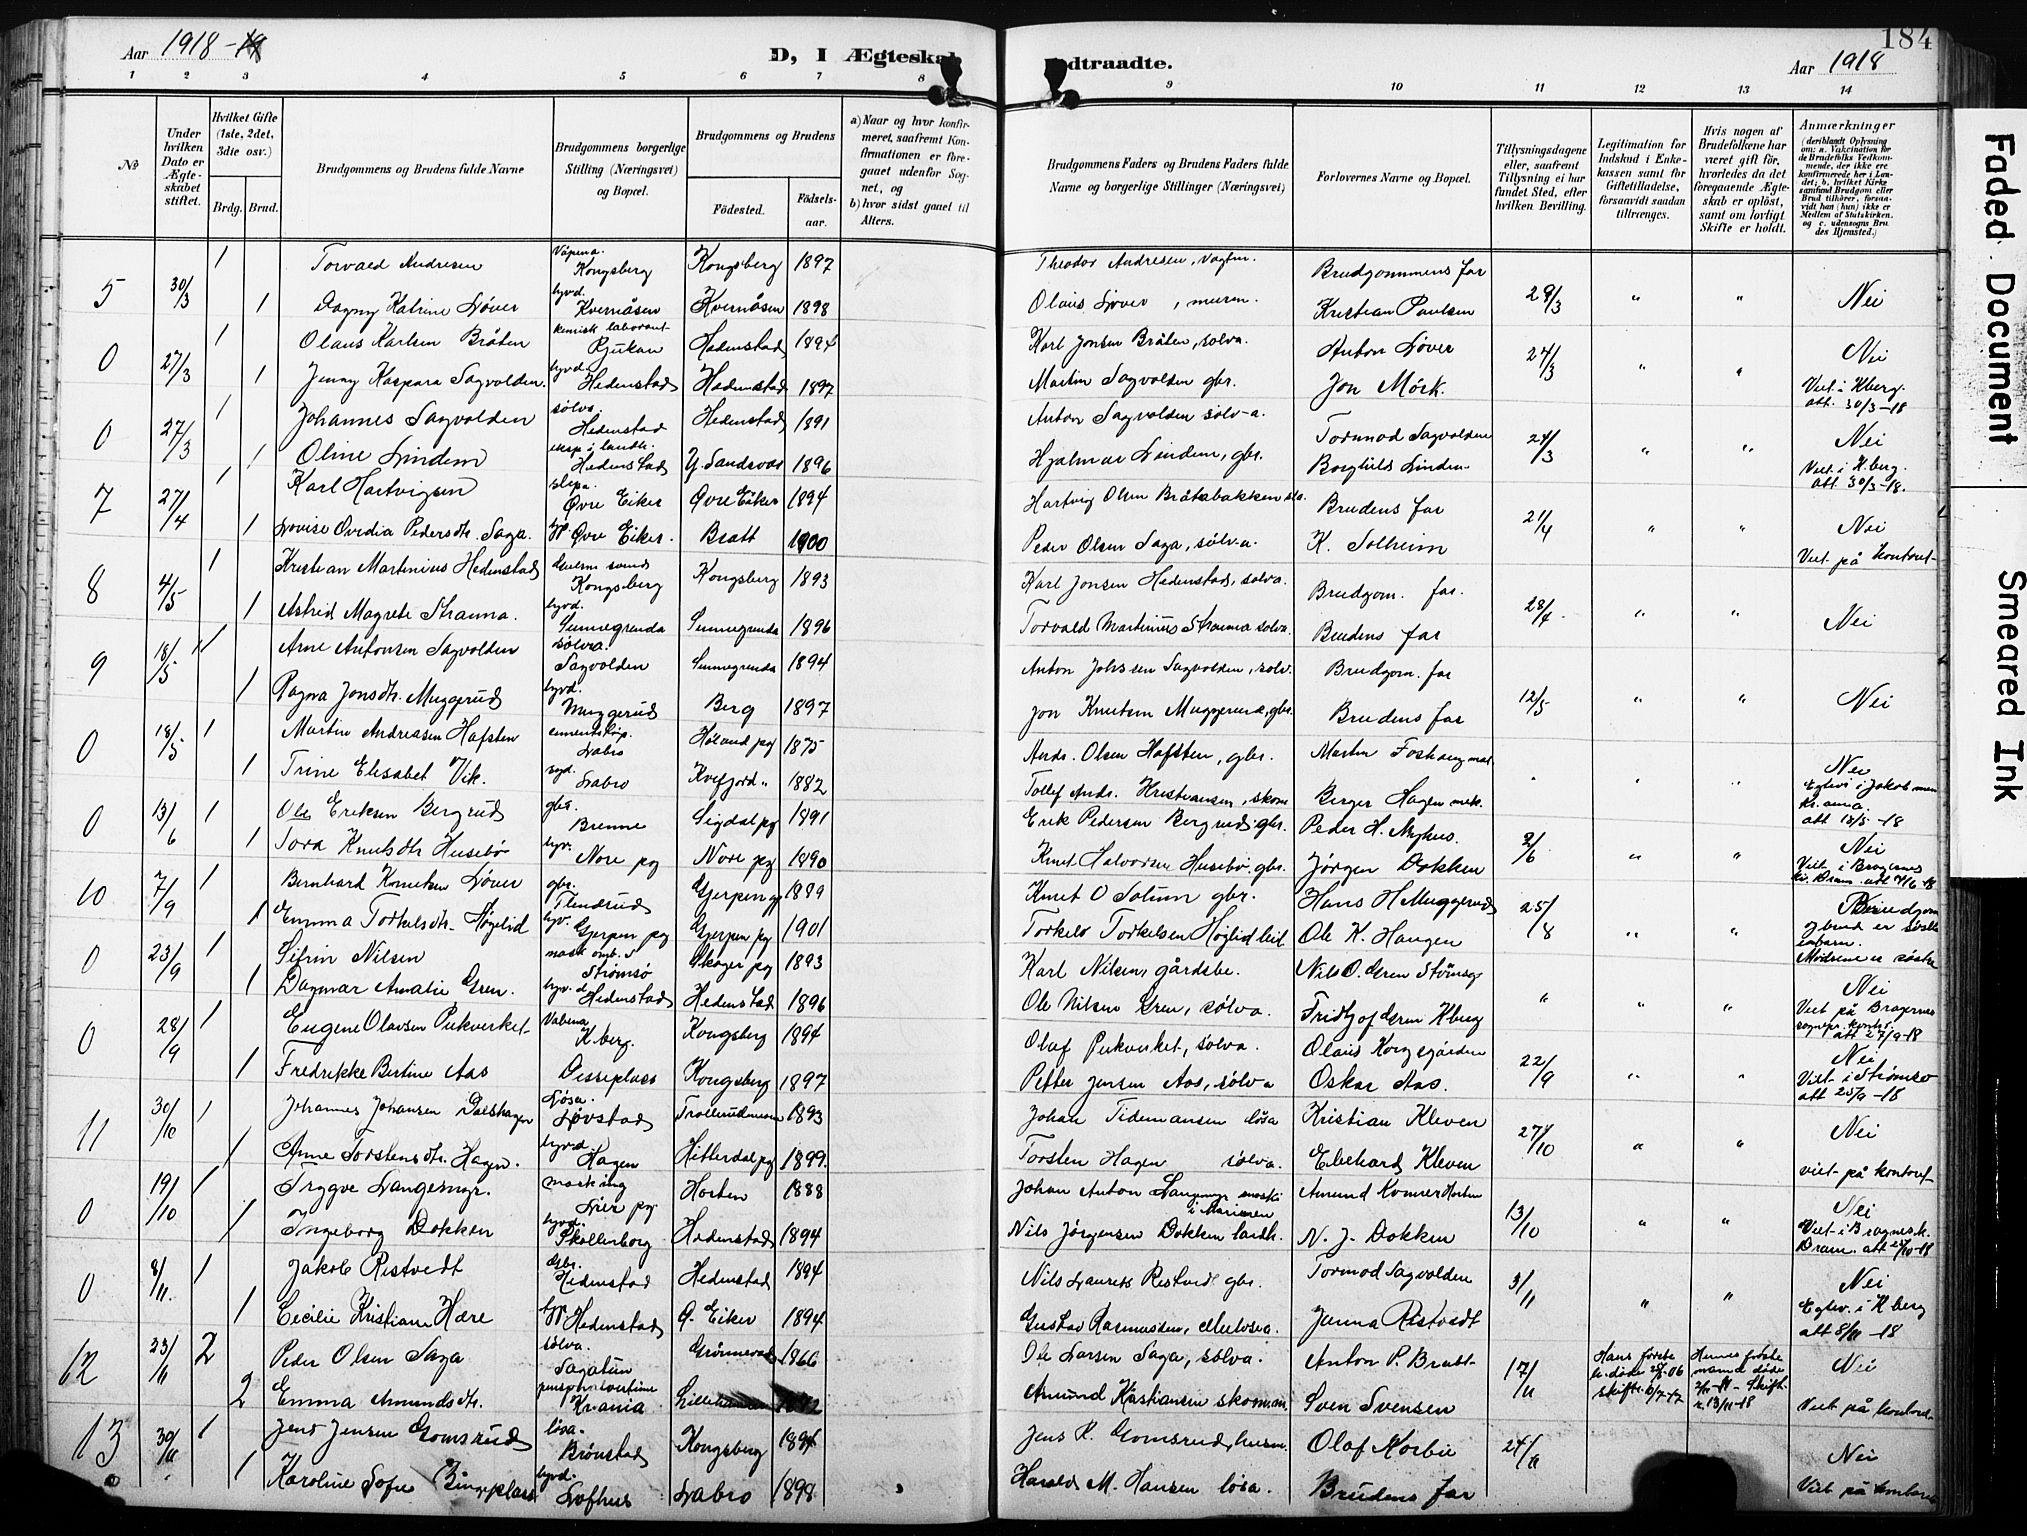 Aar 1918-19
D, I Ægteskab
1 2 3 4 5 6 7 8
No
Under hvilken Dato er Ægteskabet stiftet.
Hvilket Gifte (1ste, 2det, 3die osv.)
Brdg. Brud.
Brudgommens og Brudens fulde Navne
Brudgommens borgerlige Stilling (Næringsvei) og Bopæl.
Brudgommens og Brudens
Fødested. Fødselsaar.
a) Naar og hvor konfirmeret, saafremt Konfirmationen er foregaaet udenfor Sognet, og
b) hvor sidst gaaet til Alters.
5 30/3 1 Torvald Andresen Våpena. Kongsberg Kongsberg 1897
1 Dagny Katrine Løver hyvd. Kvernåsen Kvernåsen 1898
0 27/3 1 Olaus Karlsen Bråten kemisk laborant Rjukan Hedenstad 1894
1 Jenny Kaspara Sagvolden. hyvd. Hedenstad Hedenstad 1897
0 27/3 1 Johannes Sagvolden sølva. Hedenstad Hedenstad 1891
1 Oline Lindem eksp. i landh. Hedenstad Y. Sandsvær 1896
7 27/4 1 Karl Hartvigsen slipa. Øvre Eiker Øvre Eiker 1894
1 Lovise Ovidia Pedersdtr. Saga. Øvre Eiker. Bratt 1900
8 4/5 1 Kristian Martinius Hedenstad Kongsberg Kongsberg 1893
1 Astrid Magrete Strauma. hyvd. Sunnegrenda Sunnegrenda 1896
9 18/5 1 Arne Antonsen Sagvolden sølva. Sagvolden Sunnegrenda 1894
1 Ragna Jonsdtr. Muggerud hyvd. Muggerud Berg 1897
0 18/5 1 Martin Andreasen Hafsten Labro Høland pg 1875
1 Trine Elisabet Vik. Labro Kvefjord " 1882
0 13/6 1 Ole Eriksen Bergrud gbr. Brenne Sigdal pg 1891
1 Tora Knutsdtr Husebø hyv. Nore pg Nore pg 1890
10 7/9 1 Bernhard Knutsen Løver gbr. Flendrud Gjerpen pg 1889
1 Emma Torkelsdtr. Høgelid hyv. Gjerpen pg Gjerpen pg 1901
0 23/9 1 Sifrin Nilsen Strømsø Skoger pg 1893
1 Dagmar Amalie Gren. hyvd. Hedenstad Hedenstad 1896
0 28/9 1 Eugene Olavsen Pukverket K.berg. Kongsberg 1894
1 Fredrikke Bertine Aas Disseplass Kongsberg 1897
11 30/10 1 Johannes Johansen Dalshagen Løsa. Løvstad 1893
1 Anne Torstensdtr. Hagen. hyvd. Hagen Hitterdal pg 1899.
0 19/10 1 Trygve Langemyr. Lier pg. Horten 1888
1 Ingeborg Dokken hyvd. Skollenborg Hedenstad 1894
0 8/11. 1 Jakob Ristvedt Gbr. Hedenstad Hedenstad 1894
1 Cecilie Kristiane Hære Hedenstad Ø. Eiker 1894
12 23/11 2 Peder Olsen Saga sølva. Sagatun 1866
2 Emma Amundsdtr. Kr.ania
13 30/11 1 Jens Jensen Gomsrud løsa. Brønstad Kongsberg 1894
1 Karoline Sofie hyvd. Lofthus Labro 1898
184
dtraadte.
Aar 1918
9 10 11 12 13 14
Brudgommens Faders og Brudens Faders fulde Navne og borgerlige Stillinger (Næringsvei)
Forlovernes Navne og Bopæl.
Tillysningsdagene eller, saafremt Tillysning ei har fundet Sted, efter hvilken Bevilling.
Legitimation for Indskud i Enkekassen samt for Giftetilladelse, forsaavidt saadan tiltrænges.
Hvis nogen af Brudefolkene har været gift før, hvorledes da det foregaaende Ægteskab er opløst, samt om lovligt Skifte er holdt.
Anmærkninger
(deriblandt Oplysning om: a. Vaccination for de Brudefolks Vedkommende, der ikke ere konfirmerede her i Landet; b. hvilket Kirkesamfund Brudgom eller Brud tilhører, forsaavidt han (hun) ikke er Medlem af Statskirken, og c. udensogns Brudes Hjemsted.)
Theodor Andresen, vagtm. Brudgommens far
Olaus Løver, murm. Kristian Paulsen 29/3 " " Nei
Karl Jonsen Bråten, sølva. Anton Løver 24/3 " " Nei
Martin Sagvolden gbr. Jon Mörk. Viet i Kberg. att. 30/3-18
Anton Sagvolden sølv-a. Tormod Sagvolden 24/3 " " Nei
Hjalmar Lindem, gbr. Borghild Lindem. Viet i K.berg. att 30/3-18.
Hartvig Olsen Bråtabakken Brudens far 21/4 " " Nei
Peder Olsen Saga, sølv-a. K. Solheim Viet på kontoret
Karl Jonsen Hedenstad, sølva. Brudgom. far. 28/4 " "
Torvald Martinius Strauma sølva. Brudens far Nei
Anton Johnsen Sagvolden, sølv. Brudgom. far
Jon Knutsen Muggerud, gbr. Brudens far 12/5 " " Nei
Andr. Olsen Hafsten, gbr. Martin Foshaug
Tollef Andr. Kristiansen, skom Berger Hagen mek. Nei Egtev. i Jakob men Kr.ania. att 18/5-18
Erik Pedersen Bergrud gbr. Peder H. Myhus.
Knut Halvorsen Husebø gbr. Jørgen Dokken 2/6 " " Nei Viet i Bragernes
Knut O Solum gbr. Hans H Muggerud 25/8
Torkels Torkelsen Høglid Ole K. Haugen " " Brudgom og brud er
Karl Nilsen, gårdsbe. Nils O. Gren Strömsø
Ole Nilsen Gren, sølva. Fridtjof Gren Kberg " " " Nei Viet på Bragernes att 23/9-18
Olaf Pukverket, sølva. Olaus Kongsgården 22/9 " " Nei
Petter Jensen Aas, sølva Oskar Aas. Viet i Strømsø att 28/9-18
Johan Tidemansen løsa Kristian Kleven 27/10 " " Nei
Torsten Hagen sølva. Ebehard Kleven viet på kontoret
Johan Anton Langemyr i Marinen Amund Komner Horten 13/10 " " Nei
Nils Jørgensen Dokken landh. N. J. Dokken Viet i Bragnes k. Dram.
Nils Laurits Ristvedt gbr. Tormod Sagvolden 3/11 " " Nei
Gustav Rasmussen, Janna Ristvedt Egtev. i Kberg att 8/11-18
Ole Larsen Saga, sølva. Anton P. Bratt 17/11 Hans første h. døde Hennes første mann døde Nei
Amund Kristiansen skom.m. Sven Svensen Viet på kontoret
Jens K. Gomsrud, husm. Olaf Korbøe 24/11 Nei
Harald M. Hansen løsa. Brudens far Viet på kontoret
Faded Document
Smeared Ink